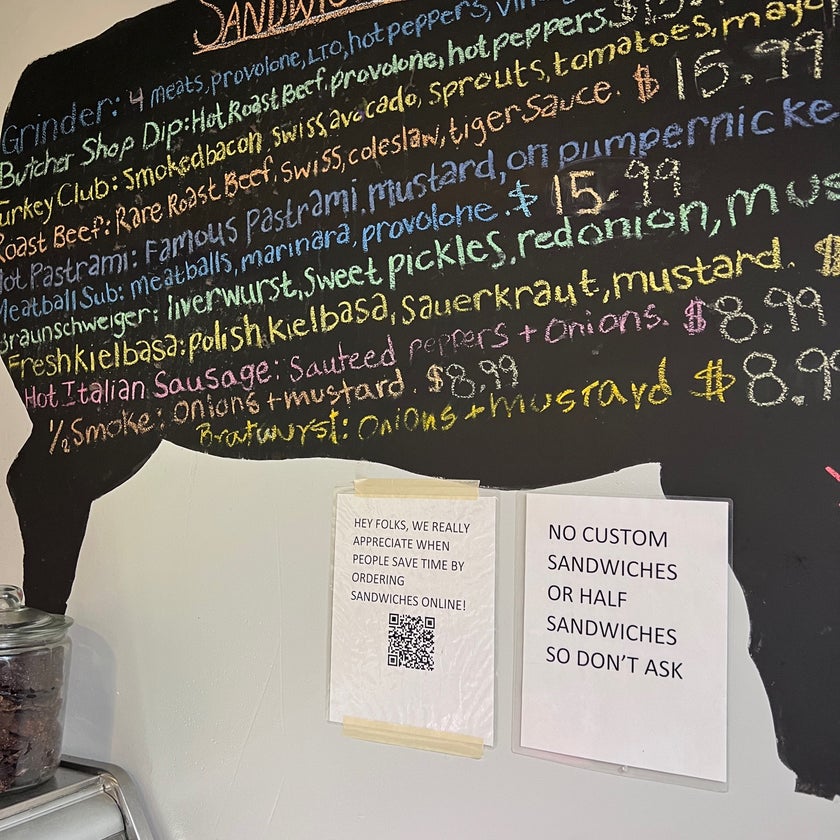 SANDWIC
Grinder: 4 meats, provolone, LTO, hot peppers, vin
Butcher Shop Dip: Hot Roast Beef, provolone, hot peppers $15.
Turkey Club: Smoked bacon, swiss, avocado, sprouts, tomatoes, mayo
Roast Beef: Rare Roast Beef, swiss, coleslaw, tiger sauce. $15.99
Hot Pastrami: Famous Pastrami, mustard, on pumpernicke
Meatball Sub: meatballs, marinara, provolone. $15.99
Braunschweiger: liverwurst, sweet pickles, red onion, mus
Fresh kielbasa: polish kielbasa, sauerkraut, mustard. $
Hot Italian Sausage: Sauteed peppers + onions. $8.99
1/2 Smoke: Onions + mustard. $8.99
Bratwurst: Onions + mustard $8.9
HEY FOLKS, WE REALLY
APPRECIATE WHEN
PEOPLE SAVE TIME BY
ORDERING
SANDWICHES ONLINE!
NO CUSTOM
SANDWICHES
OR HALF
SANDWICHES
SO DON'T ASK